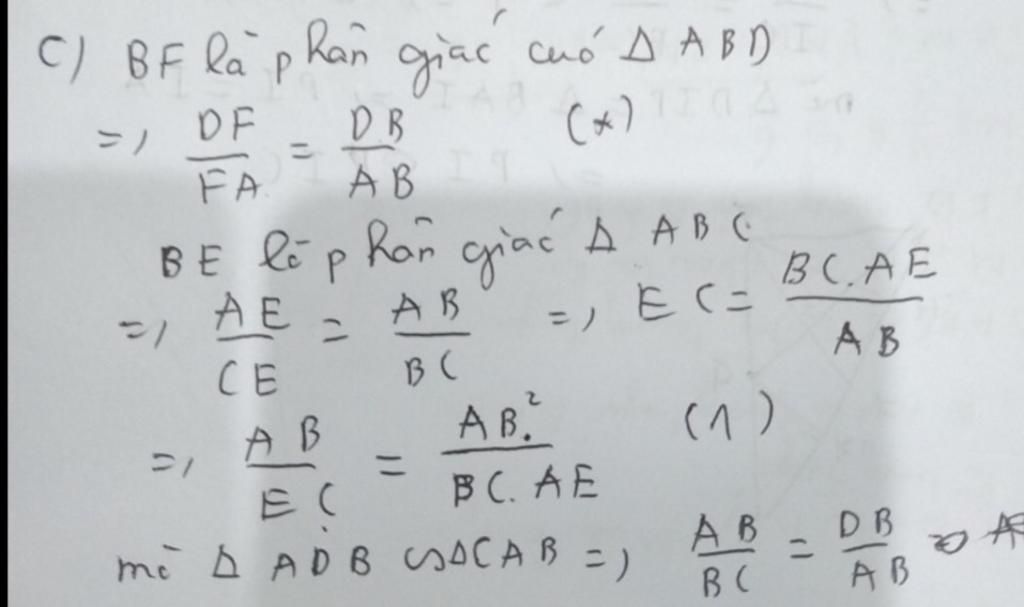 C) BF là phân giác cuả Δ ABD
=> DF/FA = DB/AB (*)
BE là phân giác Δ ABC
=> AE/CE = AB/BC => EC = BC.AE/AB
=> AB/EC = AB²/BC.AE (1)
mà Δ ADB ∽ ΔCAB => AB/BC = DB/AB